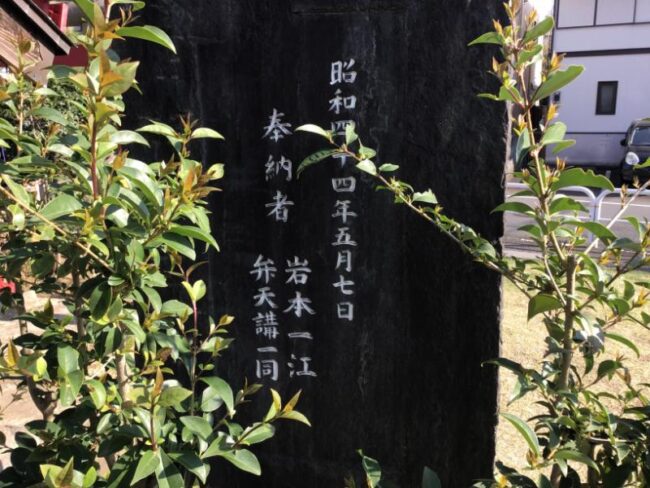 昭和四十四年五月七日
奉納者
岩本一江
弁天講一同